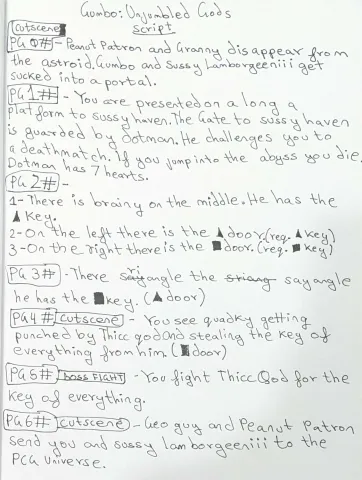 Gumbo: Unjumbled Gods
script
cutscene
PG 0# - Peanut Patron and Granny disappear from
the astroid, Gumbo and Sussy Lamborgeeniii get
sucked into a portal.
PG 1# - You are presented on a long a
platform to sussy haven. The Gate to sussy haven
is guarded by Dotman. He challenges you to
a deathmatch. If you jump into the abyss you die.
Dotman has 7 hearts.
PG 2# -
1- There is brainy on the middle. He has the
▲ key.
2- On the left there is the ▲ door. (req. ▲ key)
3- On the right there is the ■ door. (req. ■ key)
PG 3# - There say ri angle the sayangle
he has the ■ key. (▲ door)
PG 4# cutscene - You see quadky getting
punched by Thicc god and stealing the key of
everything from him. (■ door)
PG 5# BOSS FIGHT - You fight Thicc God for the
key of everything.
PG 6# cutscene - Geo guy and Peanut Patron
send you and sussy lamborgeeniii to the
PCG Universe.